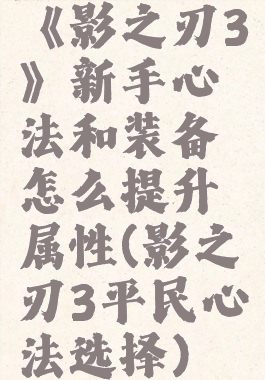 《影之刃3
》新手心
法和装备
怎么提升
属性(影之
刃3平民心
法选择)